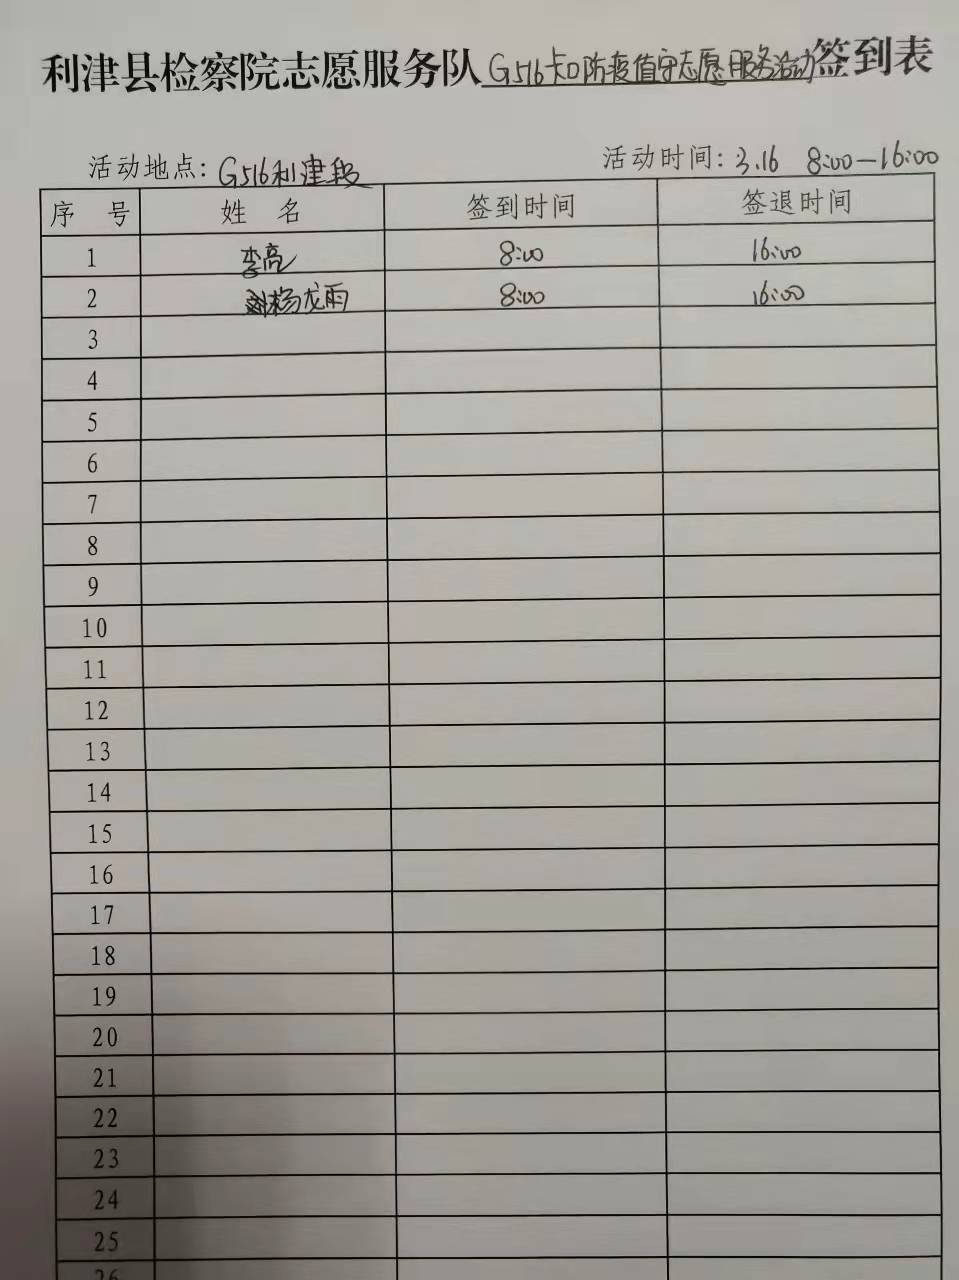 利津县检察院志愿服务队G516卡口防疫值守志愿服务活动签到表
活动地点：G516利津段 活动时间：3.16 8:00—16:00
序 号 姓 名 签到时间 签退时间
1 李亮 8:00 16:00
2 杨龙雨 8:00 16:00
3
4
5
6
7
8
9
10
11
12
13
14
15
16
17
18
19
20
21
22
23
24
25
26